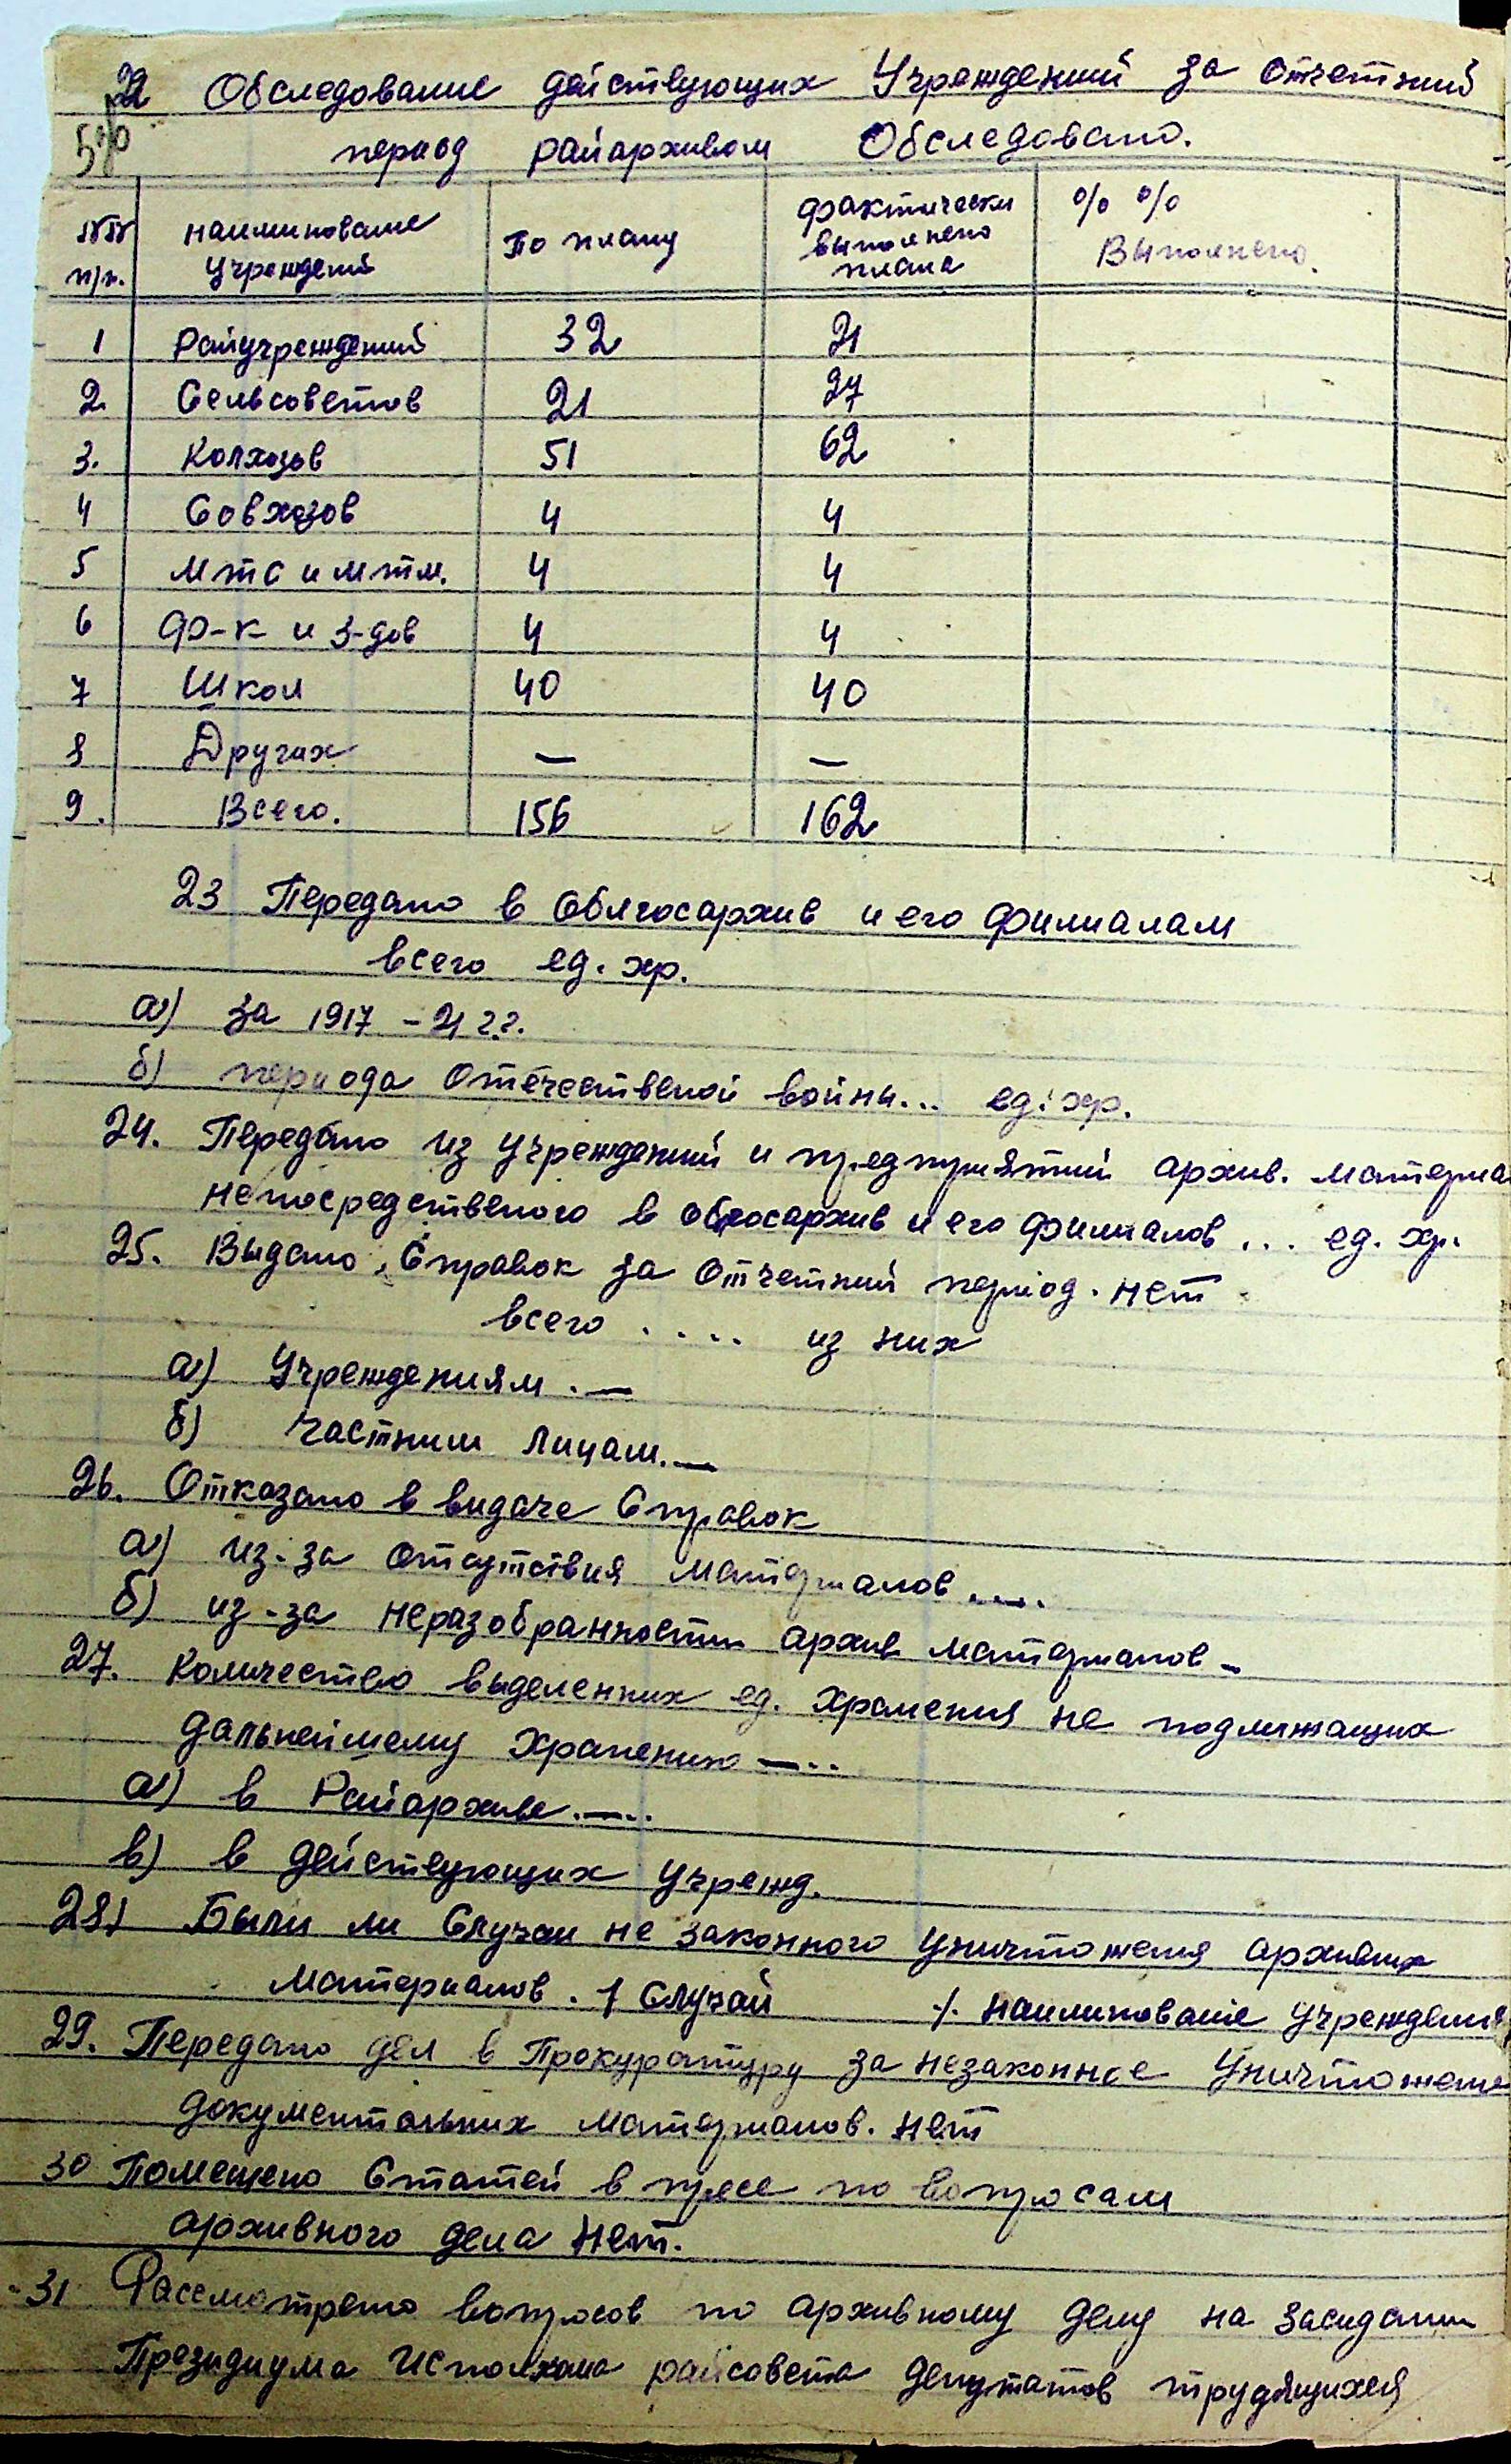 22 Обследование действующих Учреждений за отчетний
5%
период райархивом Обследовано.
№№ п/п. наиминование учреждений По плану фактически выполнено плана % % Выполнено.
1 Райучреждений 32 21
2. Сельсоветов 21 27
3. Колхозов 51 62
4 Совхозов 4 4
5 мтс и мтм. 4 4
6 Ф-к и З-дов 4 4
7 Школ 40 40
8 Других — —
9. Всего. 156 162
23 Передано в Облгосархив и его филиалам
всего ед. хр.
а) за 1917 – 21 г.г.
б) периода Отечественой войны... ед. хр.
24. Передано из учреждений и предприятий архив. материа
непосредственого в облгосархив и его филиалов ... ед. хр.
25. Выдано Справок за Отчетний период. нет
всего .... из них
а) Учреждениям. —
б) частним лицам. —
26. Отказано в видаче Справок
а) из-за отсутствия материалов ....
б) из-за неразобранности архив материалов –
27. Количество выделенних ед. хранения не подлижащих
дальнейшему хранению —..
а) в Райархиве. —..
в) в действующих учрежд.
28) Были ли Случаи не законного уничтожения архивних
материалов. 1 Случай /. наиминование учреждений
29. Передано дел в Прокуратуру за незаконное Уничтожение
документальних материалов. нет
30 Помещено Статей в пресе по вопросам
архивного дела нет.
31 Рассмотрено вопросов по архивному делу на засидании
Президиума Исполкома райсовета депутатов трудящихся